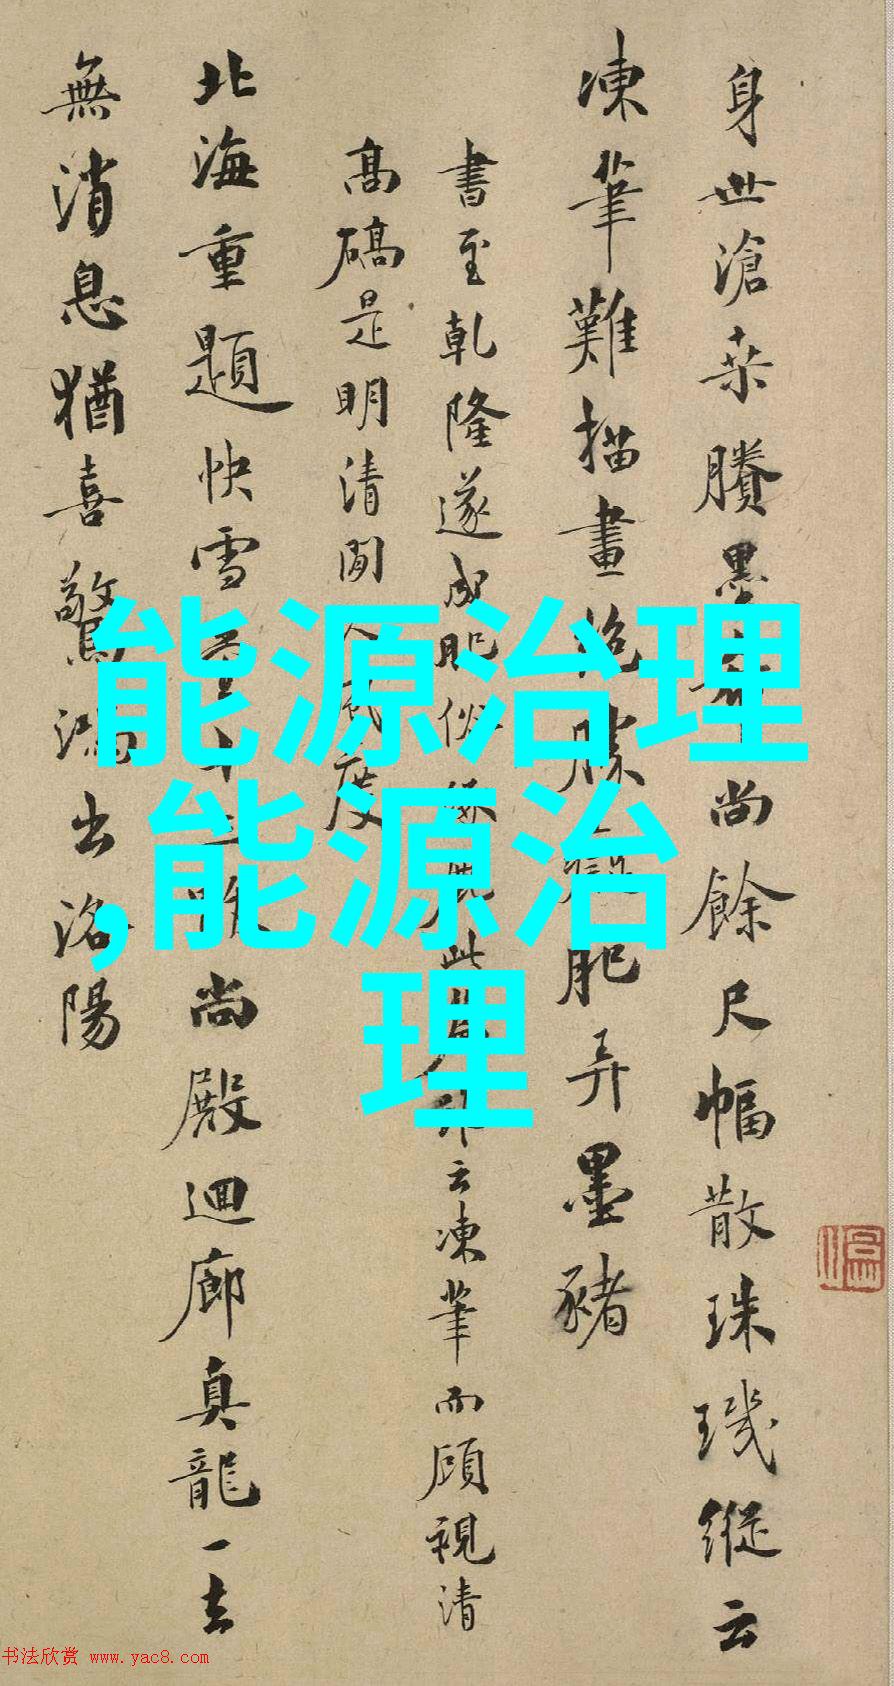 身世滄桑賸墨
尚餘尺幅散珠璣縱云
凍筆難描畫
勝
肥弄墨豬
書至乾隆遂成肥俗
此
云凍筆而顧視清
高碻是明清間人
度
北海重題快雪
尚殿迴廊真龍一去
無消息猶喜驚鴻出洛陽
能源治理
,能源治
理
书法欣赏 www.yac8.com